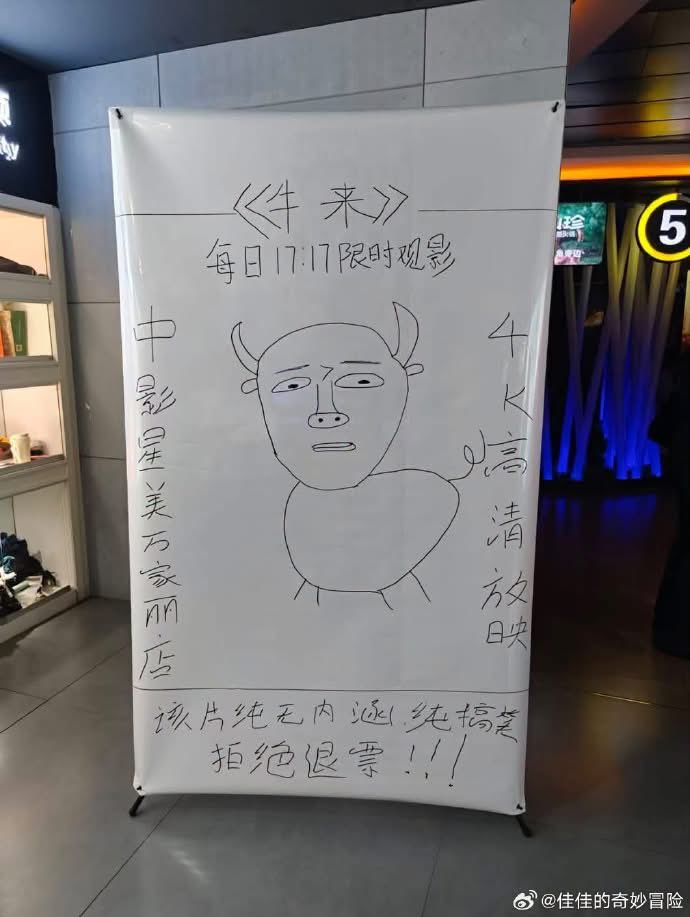 《牛来》
每日17:17限时观影
中影星美万家丽店
4K高清放映
该片纯无内涵.纯搞笑
拒绝退票!!!
5
@佳佳的奇妙冒险